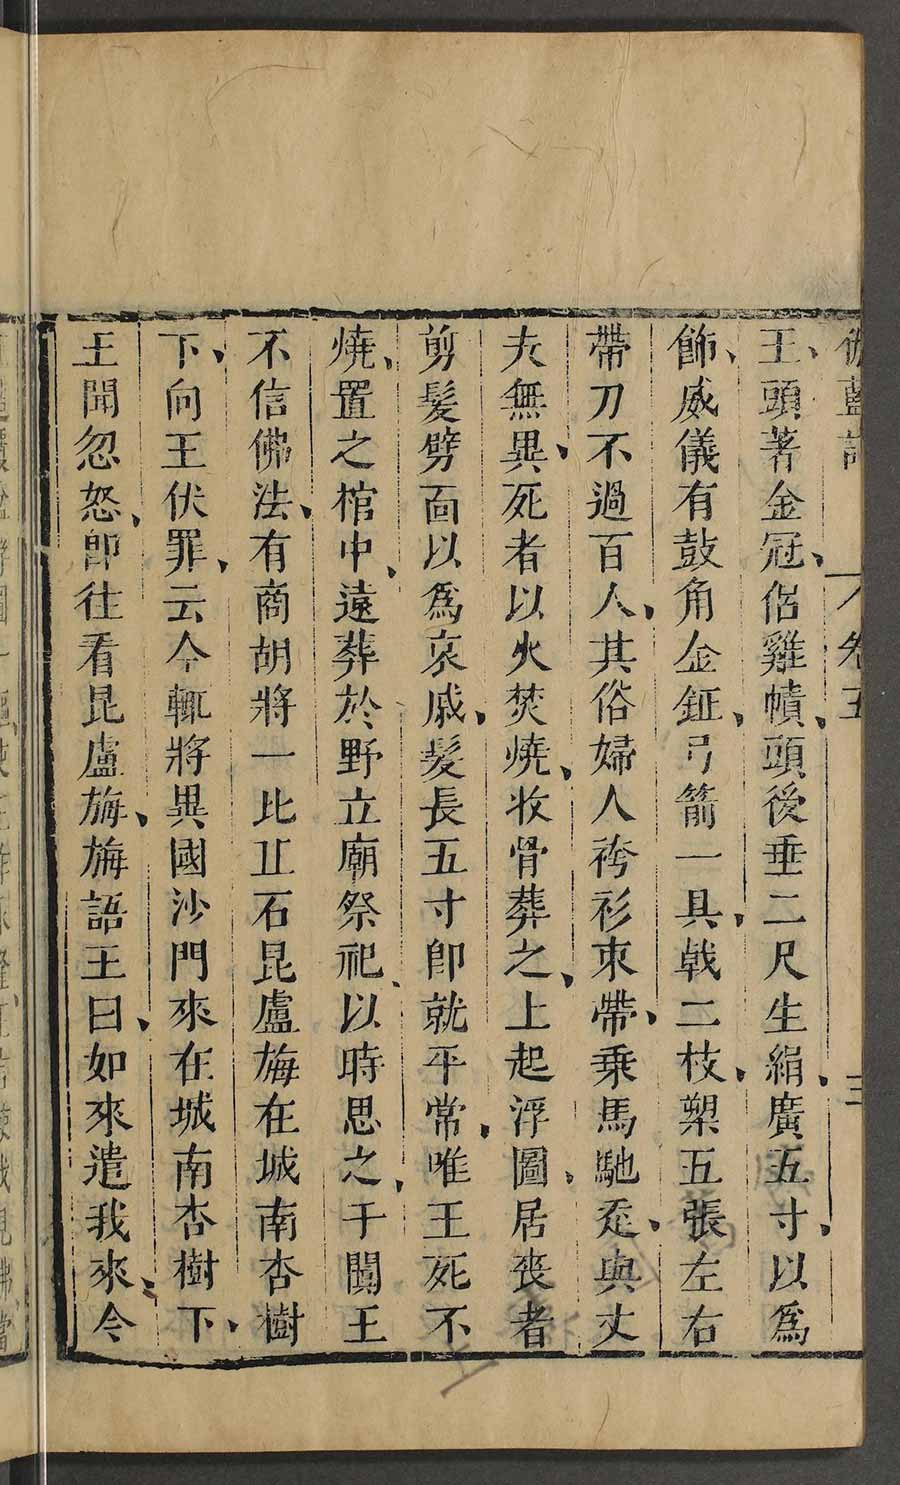 伽藍記 卷五 三
王頭著金冠侣雞幘頭後垂二尺生絹廣五寸以爲
飾威儀有鼓角金鉦弓箭一具戟二枝槊五張左右
帶刀不過百人其俗婦人袴衫束帶乘馬馳走與丈
夫無異死者以火焚燒收骨葬之上起浮圖居喪者
剪髮劈面以爲哀戚髮長五寸卽就平常唯王死不
燒置之棺中遠葬於野立廟祭祀以時思之于闐王
不信佛法有商胡將一比丘石昆盧旃在城南杏樹
下向王伏罪云今輒將異國沙門來在城南杏樹下
王聞忽怒卽往看昆盧旃旃語王曰如來遣我來令